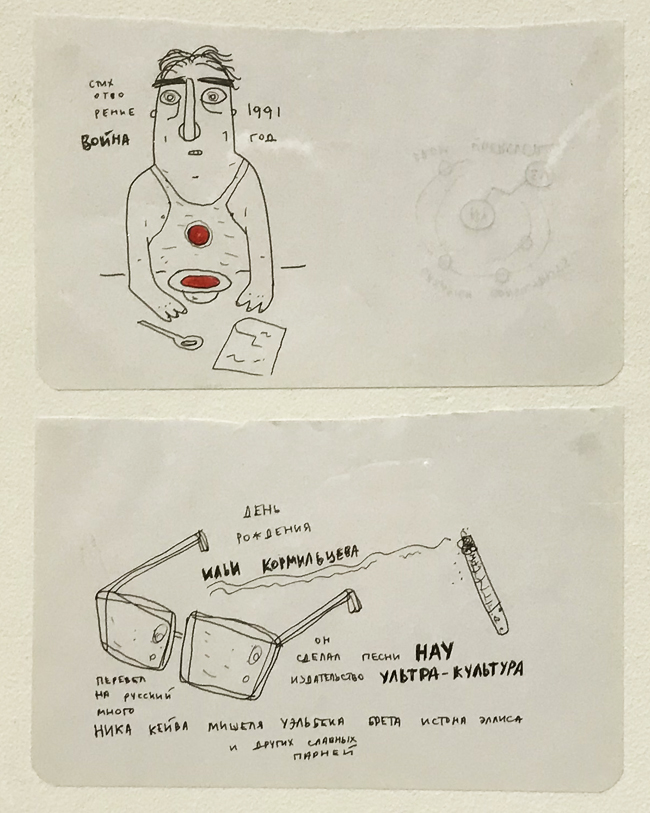 СТИХ
ОТВО
РЕНИЕ
ВОЙНА
1991
ГОД
ДЕНЬ
РОЖДЕНИЯ
ИЛЬИ КОРМИЛЬЦЕВА
ОН
СДЕЛАЛ ПЕСНИ НАУ
ИЗДАТЕЛЬСТВО УЛЬТРА-КУЛЬТУРА
ПЕРЕВЕЛ
НА РУССКИЙ
МНОГО
НИКА КЕЙВА МИШЕЛЯ УЭЛЬБЕКА БРЕТА ИСТОНА ЭЛЛИСА
И ДРУГИХ СЛАВНЫХ
ПАРНЕЙ